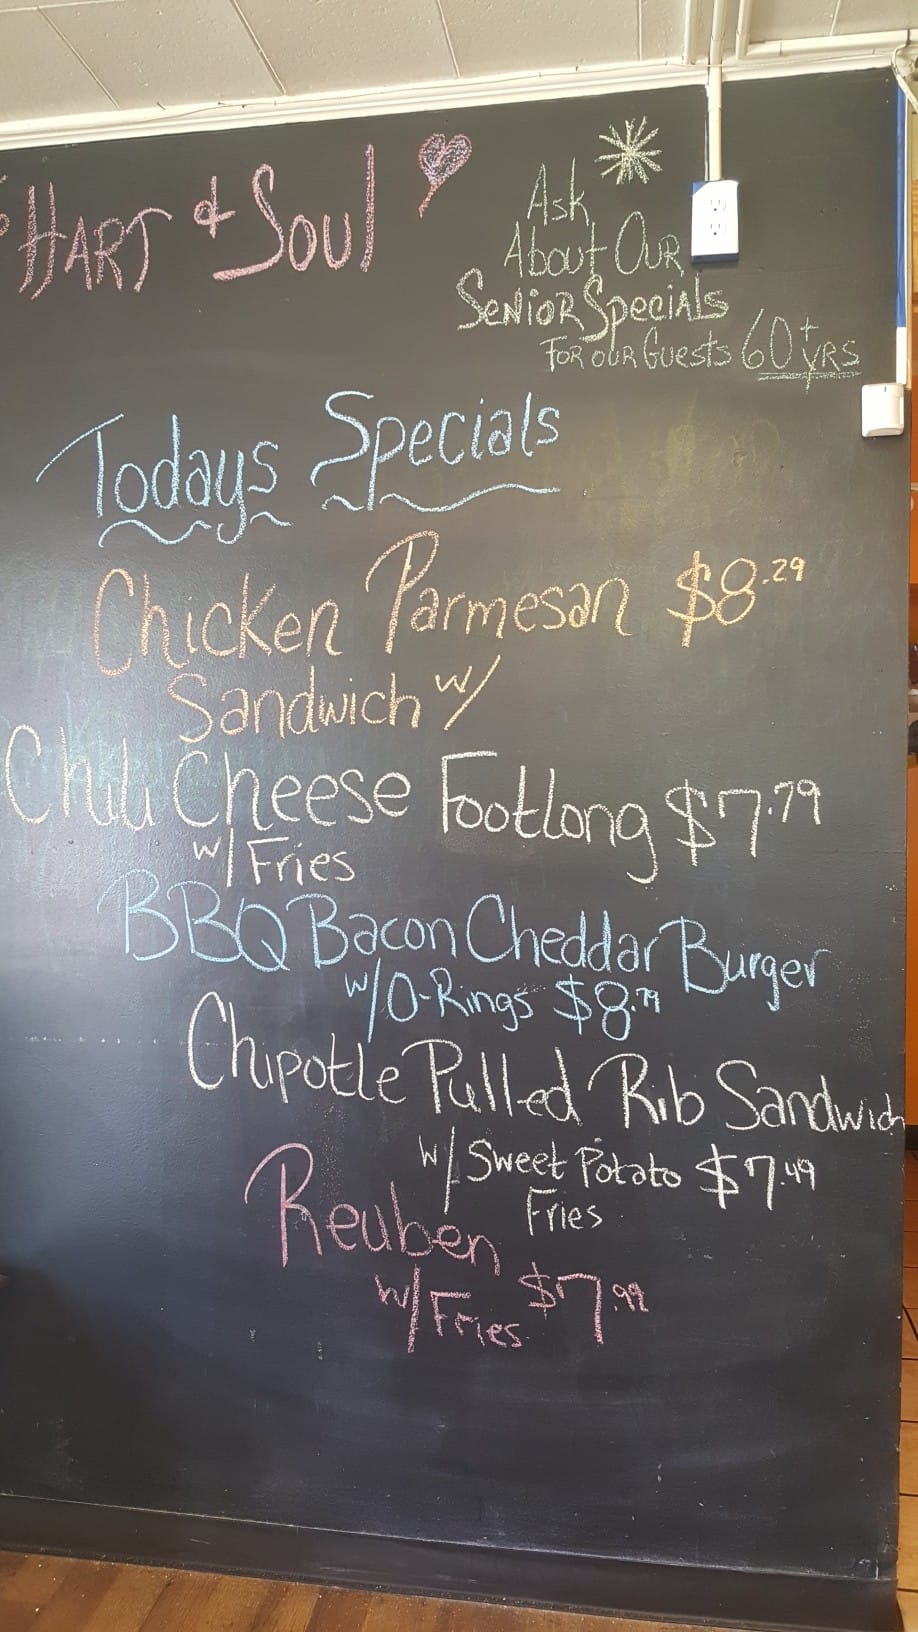 HART & Soul
Ask
About Our
Senior Specials
For our Guests 60+ yrs
Todays Specials
Chicken Parmesan $8.29
Sandwich w/
Chili Cheese Footlong $7.79
w/ Fries
BBQ Bacon Cheddar Burger
w/ O-Rings $8.79
Chipotle Pulled Rib Sandwich
w/ Sweet Potato $7.49
Fries
Reuben
w/ Fries $7.99